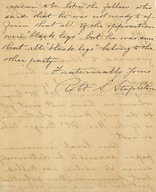 appears to be like the fellow who
said that he was not ready to af-
firm that all of the opposition
were "black legs", but he was sure
that all "black legs" belong to the
other party.
Fraternally Yours
Robt S. Stapleton